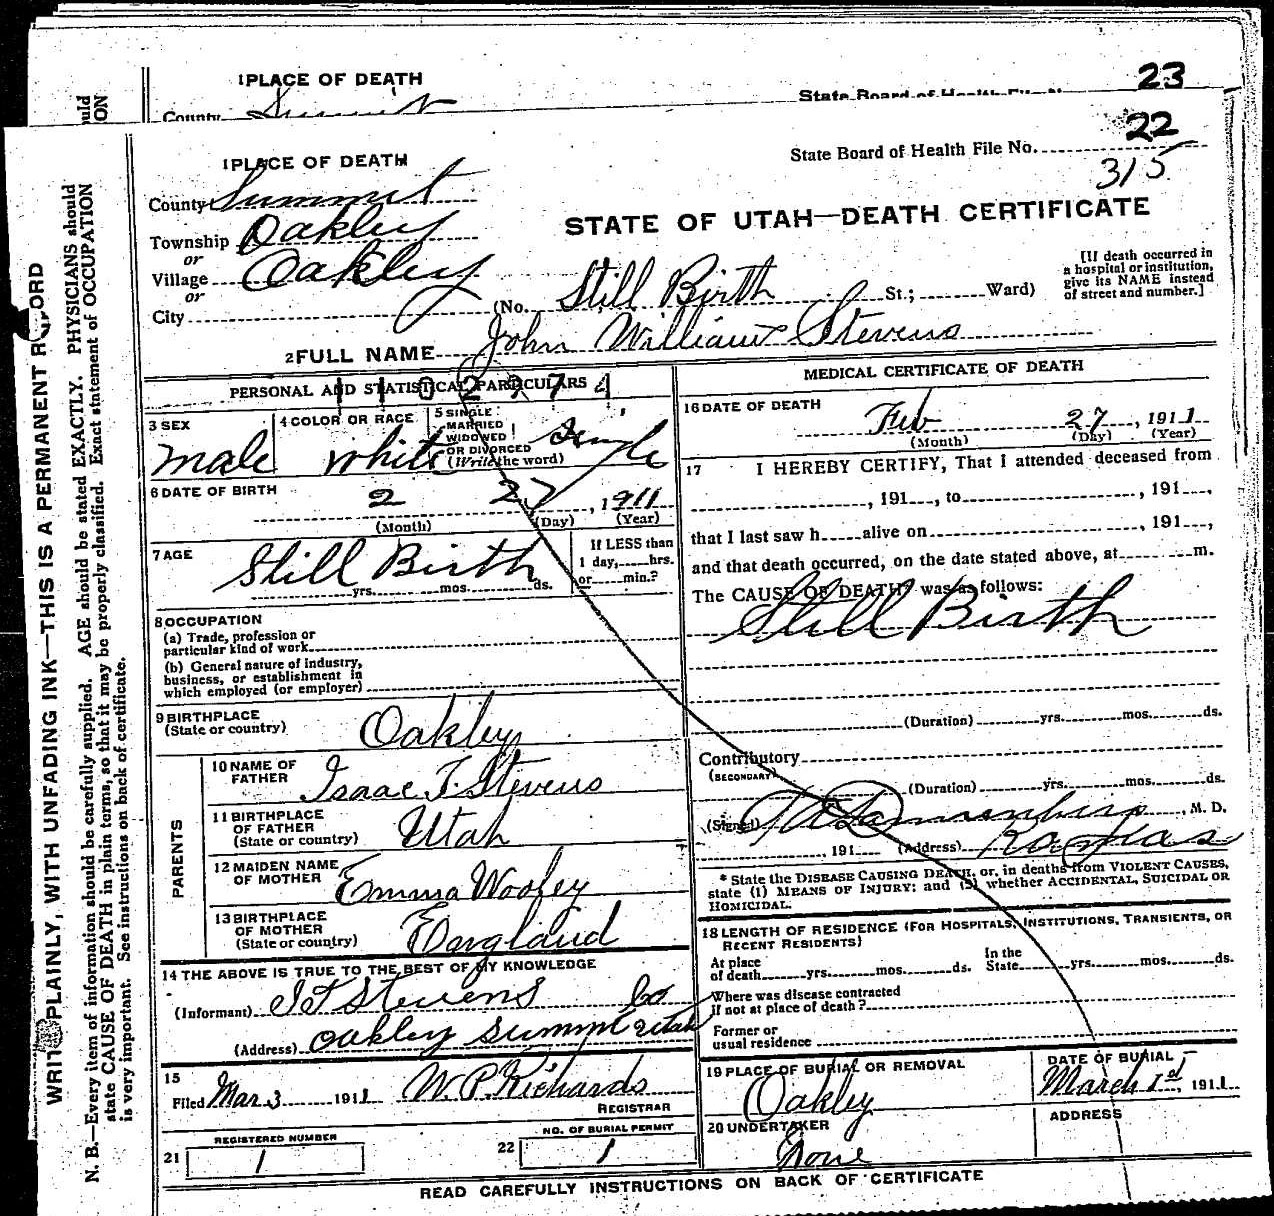 1 PLACE OF DEATH
23
County Summit
State Board of Health File No.
22
1 PLACE OF DEATH
State Board of Health File No.
315
County Summit
STATE OF UTAH—DEATH CERTIFICATE
Township Oakley
or
Village Oakley
or
City
(No. Still Birth St.; Ward)
[If death occurred in
a hospital or institution,
give its NAME instead
of street and number.]
2 FULL NAME John William Stevens
PERSONAL AND STATISTICAL PARTICULARS
3 SEX
male
4 COLOR OR RACE
white
5 SINGLE
MARRIED
WIDOWED
OR DIVORCED
(Write the word)
Single
6 DATE OF BIRTH
2 27, 1911
(Month) (Day) (Year)
7 AGE
Still Birth
yrs. mos. ds.
If LESS than
1 day, hrs.
or min.?
8 OCCUPATION
(a) Trade, profession or
particular kind of work
(b) General nature of industry,
business, or establishment in
which employed (or employer)
9 BIRTHPLACE
(State or country)
Oakley
PARENTS
10 NAME OF
FATHER
Isaac T. Stevens
11 BIRTHPLACE
OF FATHER
(State or country)
Utah
12 MAIDEN NAME
OF MOTHER
Emma Woolley
13 BIRTHPLACE
OF MOTHER
(State or country)
England
14 THE ABOVE IS TRUE TO THE BEST OF MY KNOWLEDGE
(Informant) I T Stevens
(Address) Oakley Summit Co Utah
15
Filed Mar 3 1911 W. P. Richards
REGISTRAR
21
REGISTERED NUMBER
1
22
NO. OF BURIAL PERMIT
1
MEDICAL CERTIFICATE OF DEATH
16 DATE OF DEATH
Feb 27, 1911
(Month) (Day) (Year)
17 I HEREBY CERTIFY, That I attended deceased from
, 191 , to , 191 ,
that I last saw h alive on , 191 ,
and that death occurred, on the date stated above, at m.
The CAUSE OF DEATH* was as follows:
Still Birth
(Duration) yrs. mos. ds.
Contributory
(SECONDARY)
(Duration) yrs. mos. ds.
(Signed) , M. D.
, 191 (Address) Kamas
* State the DISEASE CAUSING DEATH, or, in deaths from VIOLENT CAUSES,
state (1) MEANS OF INJURY; and (2) whether ACCIDENTAL, SUICIDAL OR
HOMICIDAL.
18 LENGTH OF RESIDENCE (FOR HOSPITALS, INSTITUTIONS, TRANSIENTS, OR
RECENT RESIDENTS)
At place
of death yrs. mos. ds.
In the
State yrs. mos. ds.
Where was disease contracted
if not at place of death?
Former or
usual residence
19 PLACE OF BURIAL OR REMOVAL
Oakley
DATE OF BURIAL
March 1st, 1911
20 UNDERTAKER
None
ADDRESS
READ CAREFULLY INSTRUCTIONS ON BACK OF CERTIFICATE
WRITE PLAINLY, WITH UNFADING INK—THIS IS A PERMANENT RECORD
N. B.—Every item of information should be carefully supplied. AGE should be stated EXACTLY. PHYSICIANS should
state CAUSE OF DEATH in plain terms, so that it may be properly classified. Exact statement of OCCUPATION
is very important. See instructions on back of certificate.